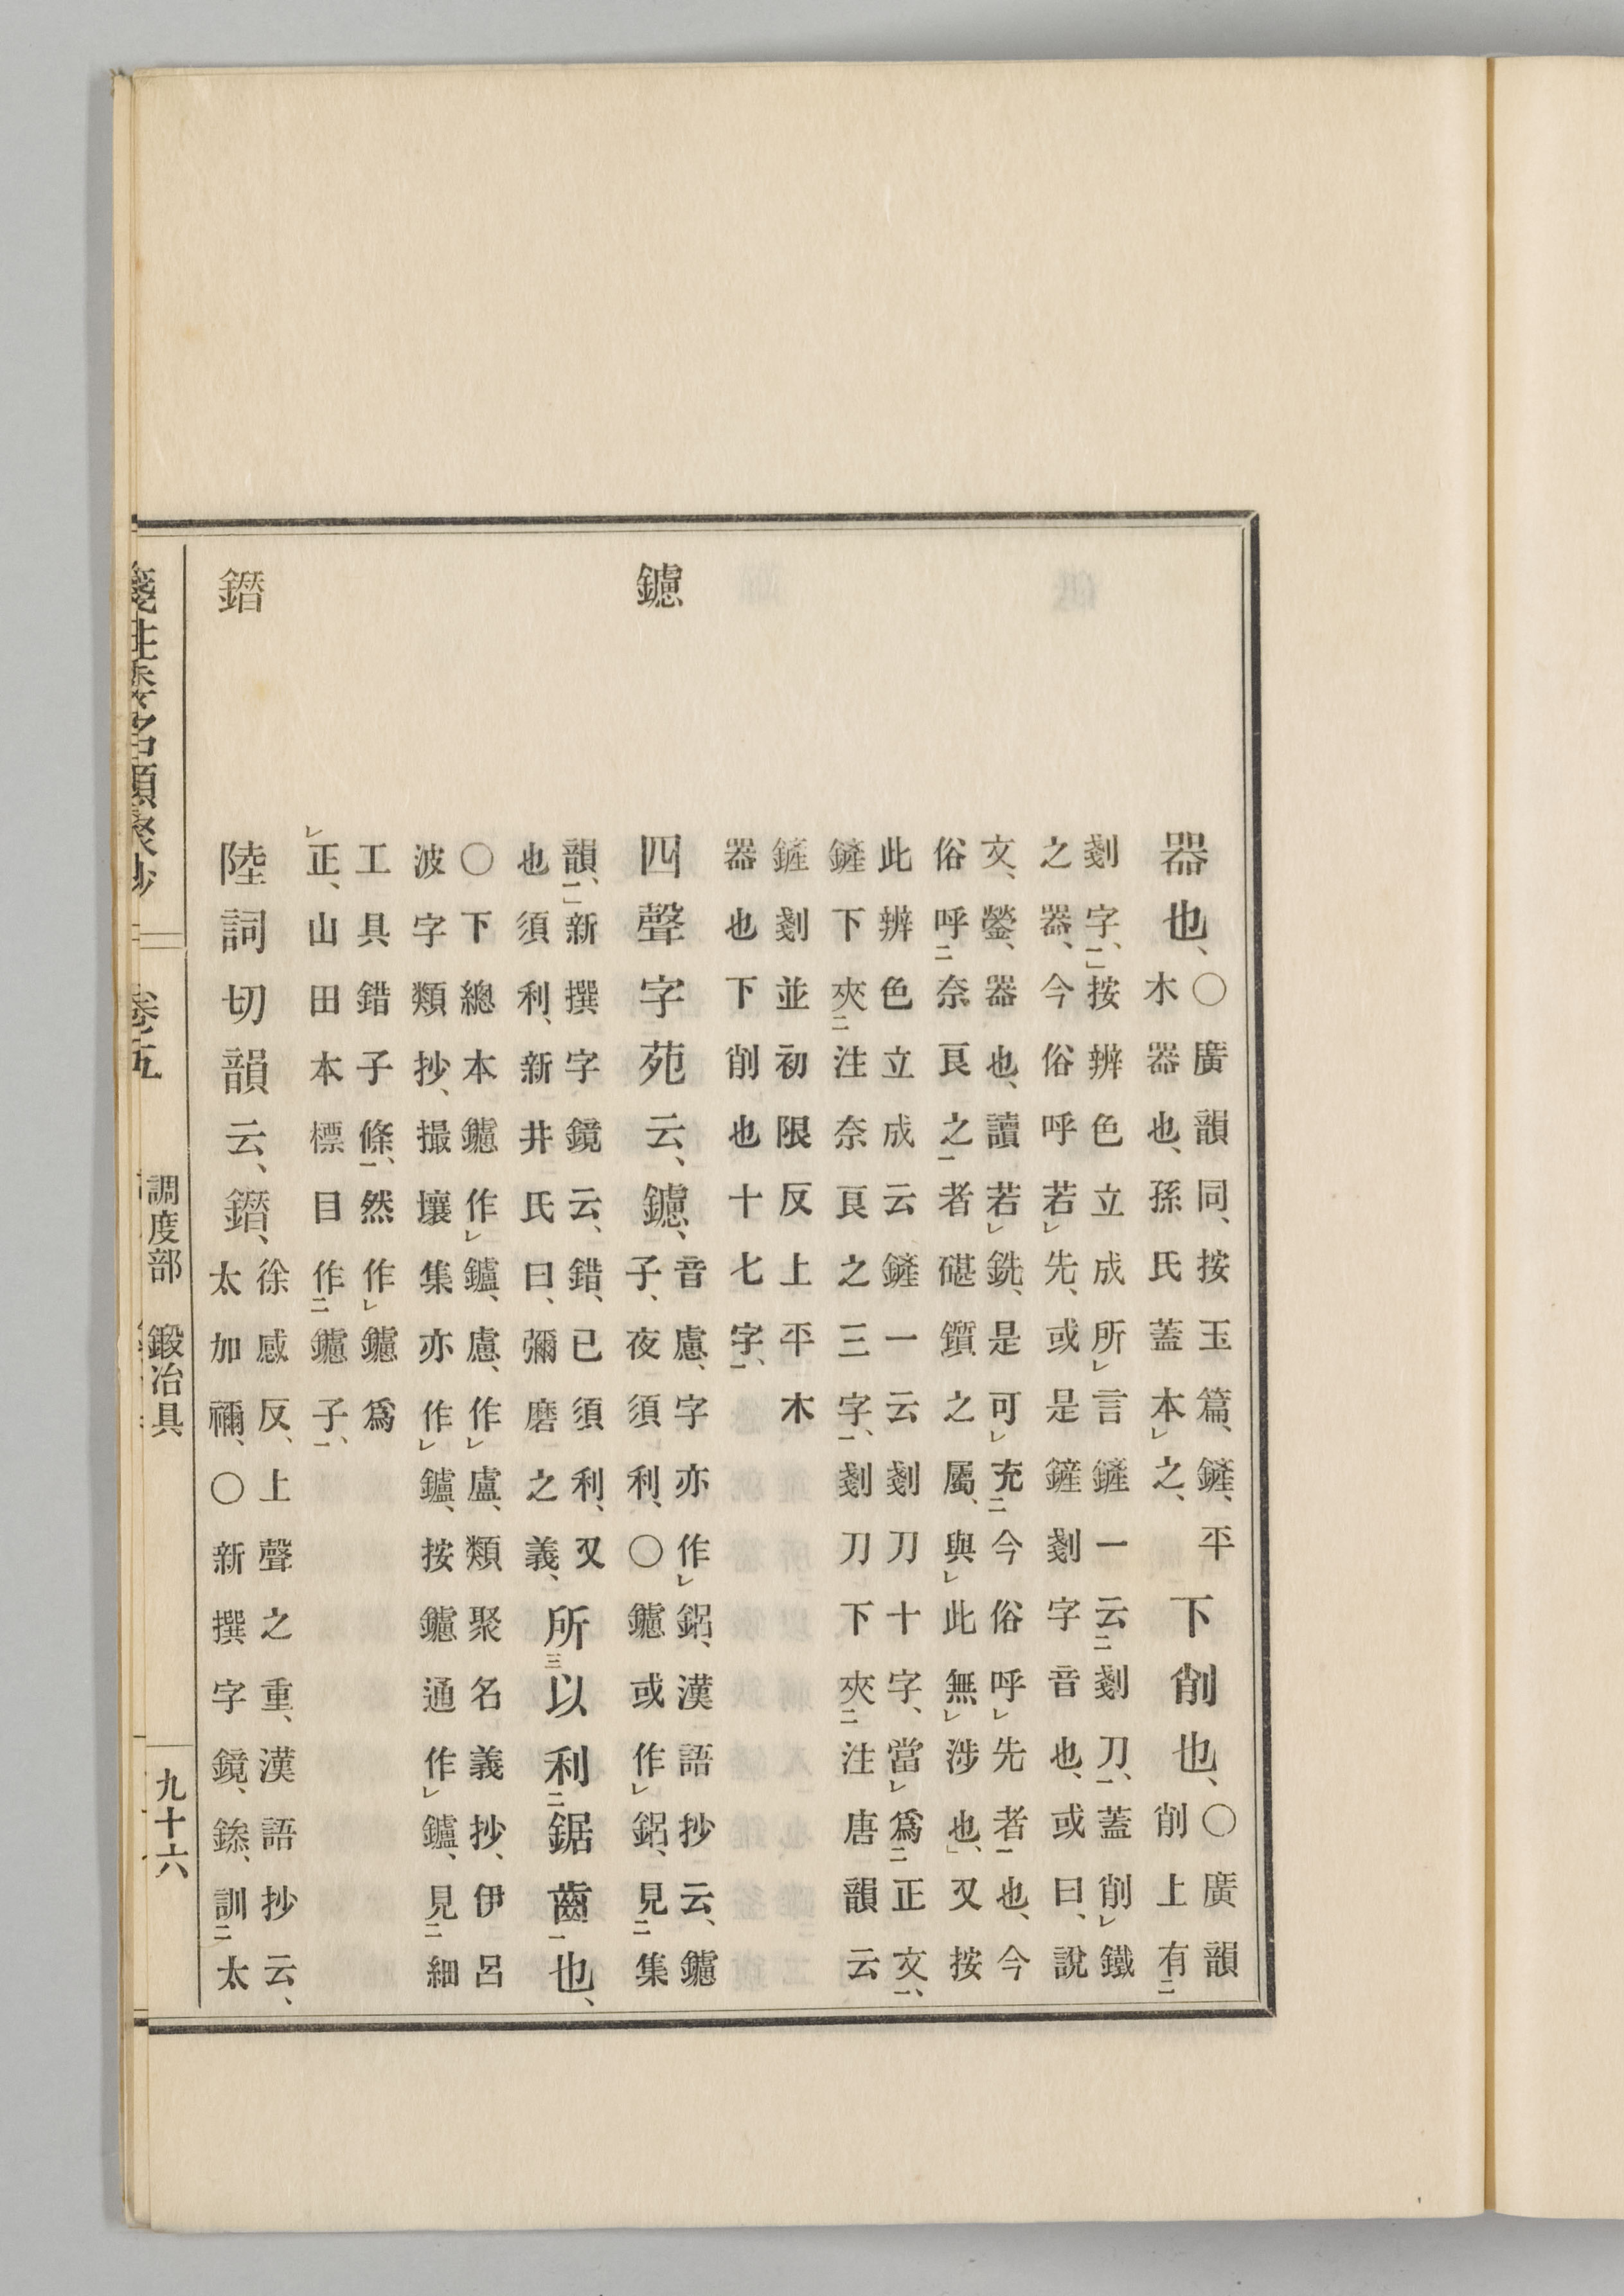 器也、○廣韻同、按玉篇、鏟、平
木器也、孫氏蓋本之、下削也、○廣韻
削上有
剗字、」按辨色立成所言鏟一云剗刀、蓋削鐵
之器、今俗呼若先、或是鏟剗字音也、或曰、說
文、鎣、器也、讀若銑、是可充今俗呼先者也、今
俗呼奈良之者碪鑕之屬、與此無涉也、」又按
此辨色立成云鏟一云剗刀十字、當爲正文、
鏟下夾注奈良之三字、剗刀下夾注唐韻云
鏟剗並初限反上平木
器也下削也十七字、
鑢
四聲字苑云、鑢、音慮、字亦作鋁、漢語抄云、鑢
子、夜須利、○鑢或作鋁、見集
韻、」新撰字鏡云、錯、已須利、又
也須利、新井氏曰、彌磨之義、所以利鋸齒也、
○下總本鑢作鑪、慮、作盧、類聚名義抄、伊呂
波字類抄、撮壤集亦作鑪、按鑢通作鑪、見細
工具錯子條、然作鑢爲
正、山田本標目作鑢子、
鐕
陸詞切韻云、鐕、徐感反、上聲之重、漢語抄云、
太加禰、○新撰字鏡、訓太
箋注倭名類聚抄 卷五 調度部 鍛冶具 九十六